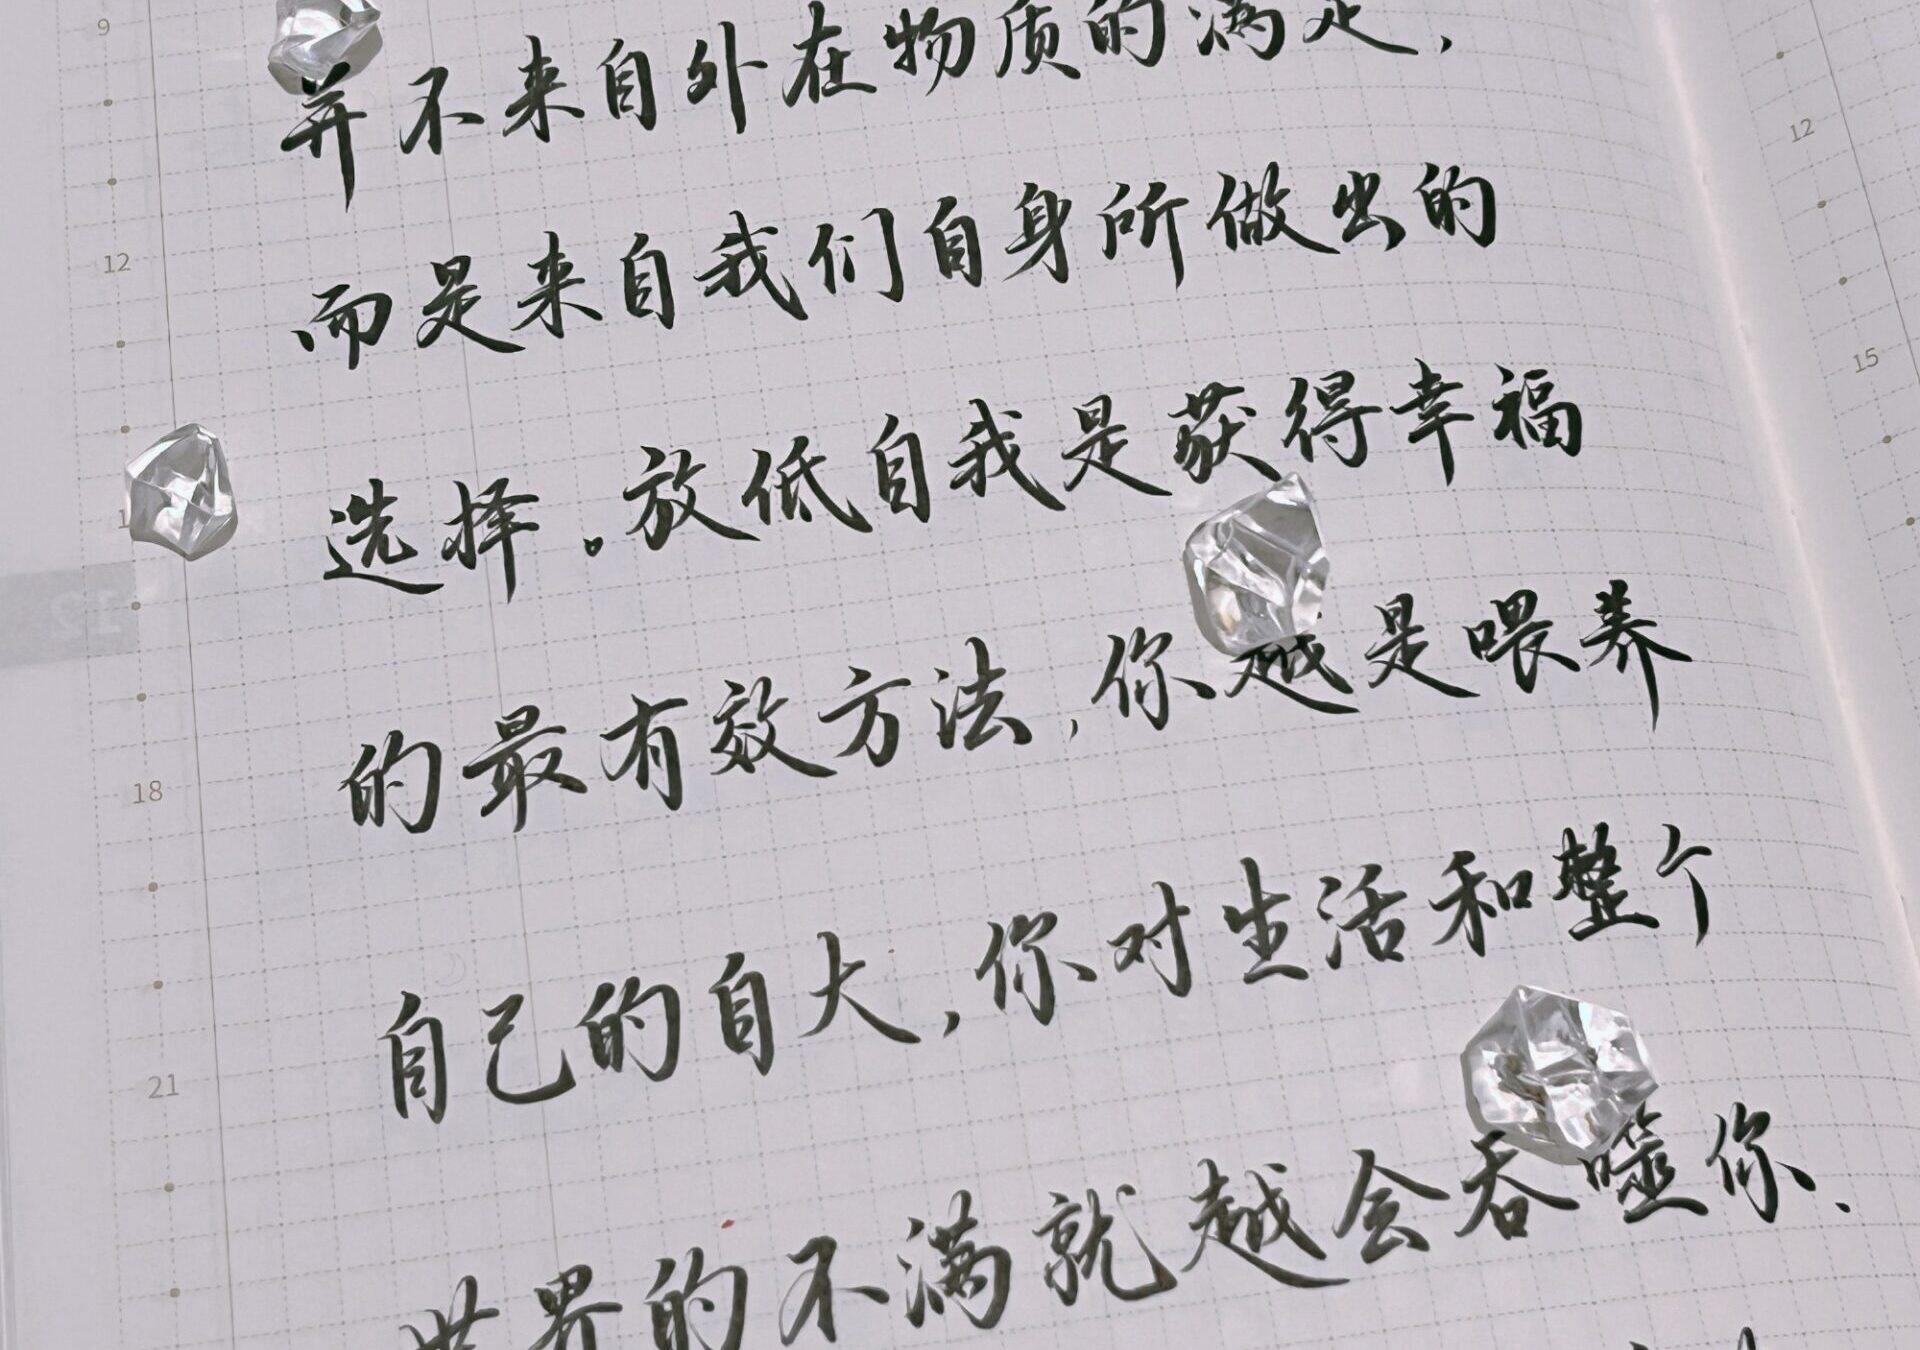 9
并不来自外在物质的满足,
12
而是来自我们自身所做出的
12
选择。放低自我是获得幸福
15
的最有效方法,你越是喂养
18
自己的自大,你对生活和整个
21
世界的不满就越会吞噬你.